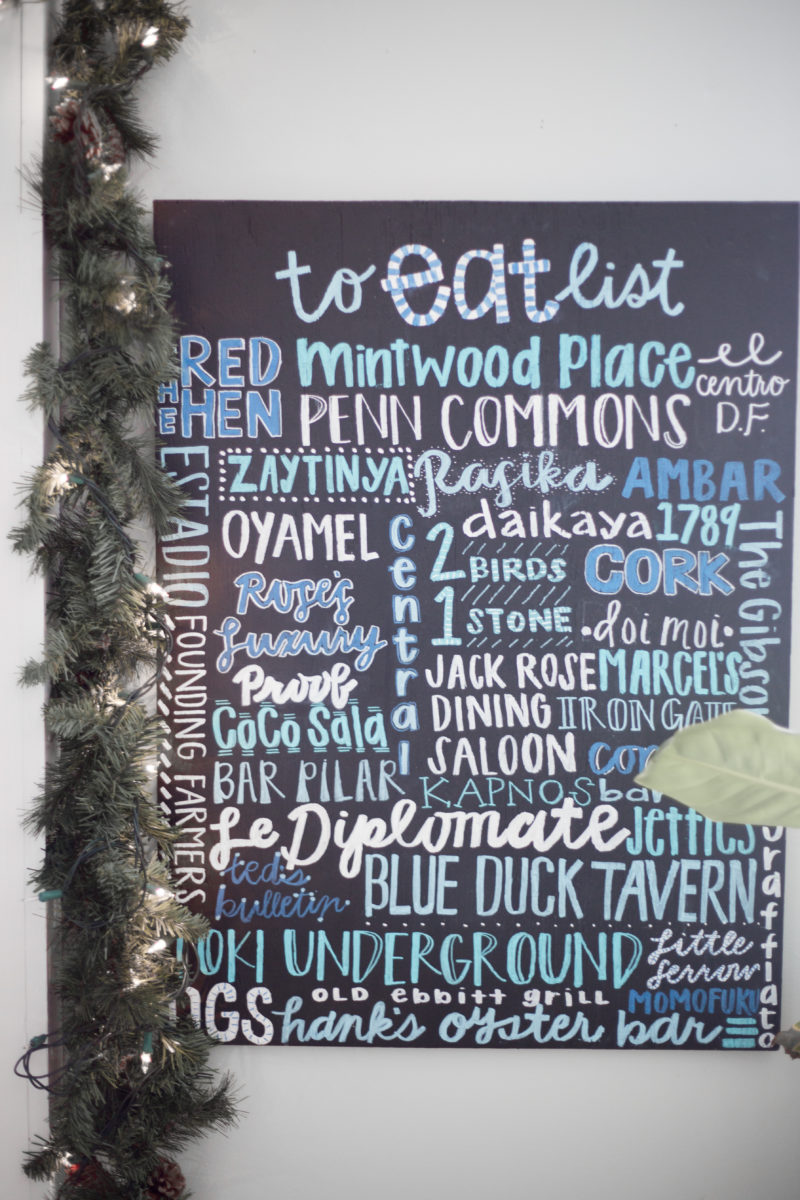 to eat list
THE RED HEN
mintwood place
el centro D.F.
PENN COMMONS
ESTADIO
ZAYTINYA
Rasika
AMBAR
OYAMEL
central
daikaya
1789
2 BIRDS
1 STONE
CORK
The Gibson
Rose's
Luxury
doi moi
FOUNDING FARMERS
Proof
JACK ROSE
DINING
SALOON
MARCEL'S
CoCo Sala
IRON GATE
BAR PILAR
KAPNOS
bar
Le Diplomate
Jettics
ted's
bulletin
BLUE DUCK TAVERN
Graffiato
TOKI UNDERGROUND
little
serrow
OLD ebbitt grill
MOMOFUKU
DGS
hank's oyster bar